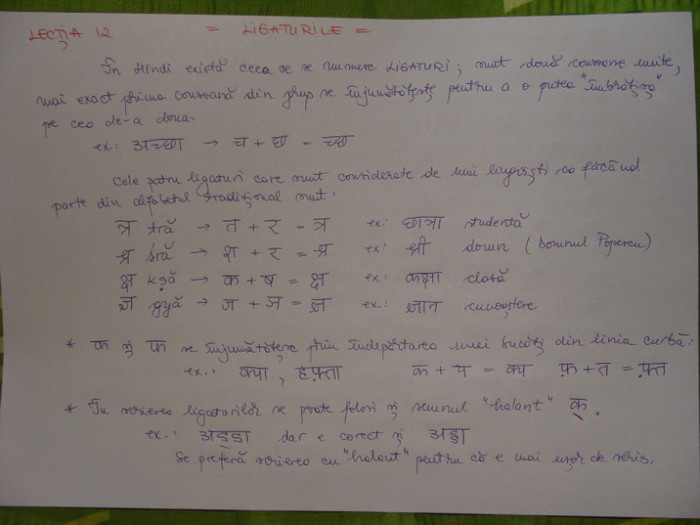 LECȚIA 12 = LIGATURILE =
În Hindi există ceea ce se numesc LIGATURI; sunt două consoane unite,
mai exact prima consoană din grup se înjumătățește pentru a o putea "îmbrățișa"
pe cea de-a doua.
ex.: अच्छा → च + छ = च्छ
Cele patru ligaturi care sunt considerate de unii lingviști ca făcând
parte din alfabetul tradițional sunt:
त्र tră → त + र = त्र ex: छात्रा studentă
श्र șră → श + र = श्र ex: श्री domn (domnul Popescu)
क्ष kșă → क + ष = क्ष ex: कक्षा clasă
ज्ञ gyă → ज + ञ = ज्ञ ex.: ज्ञान cunoaștere
* क și फ se înjumătățesc prin îndepărtarea unei bucăți din linia curbă:
ex.: क्या, हफ़्ता क + य = क्य फ़ + त = फ़्त
* În scrierea ligaturilor se poate folosi și semnul "halant" क्.
ex.: अड्‌डा dar e corect și अड्डा
Se preferă scrierea cu "halant" pentru că e mai ușor de scris.